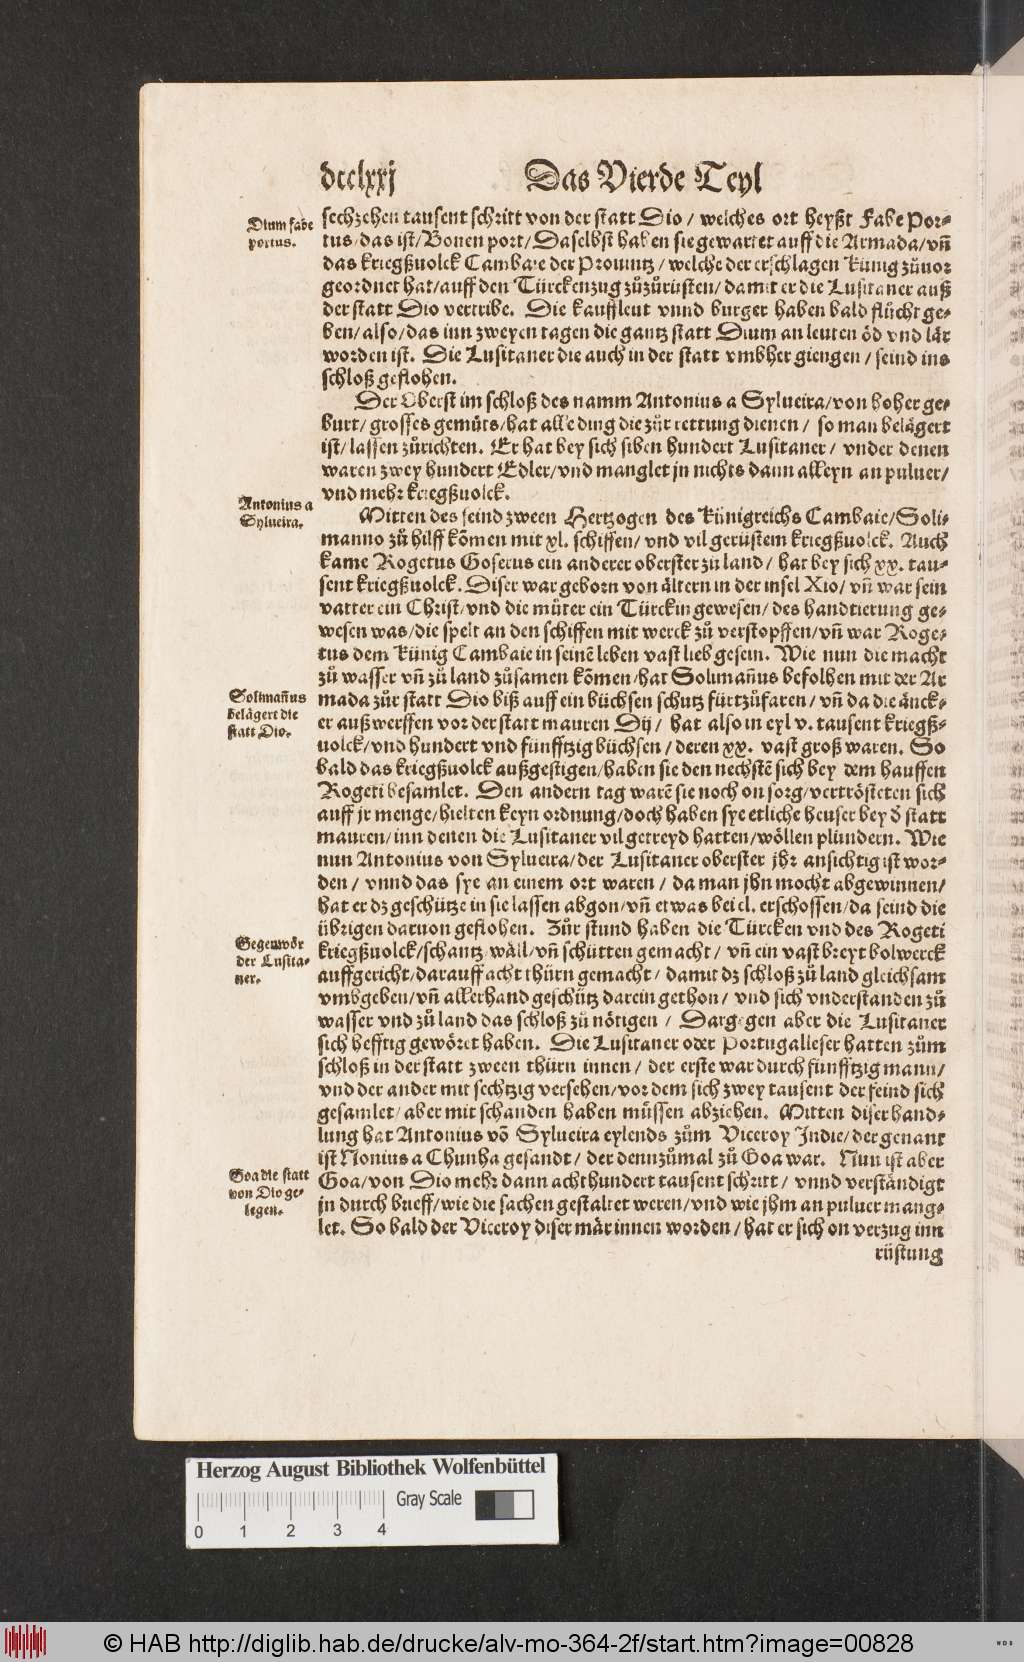 dcclxxj Das Vierde Teyl
Dium fabe
portus.
sechzehen tausent schritt von der statt Dio / welches ort heyßt Fabe Por⸗
tus / das ist / Bonen port / Daselbst haben sie gewartet auff die Armada / vñ
das kriegßuolck Cambaie der Prouintz / welche der erschlagen Künig zůuor
geordnet hat / auff den Türckenzug zůzůrüsten / damit er die Lusitaner auß
der statt Dio vertribe. Die kauffleut vnnd burger haben bald flůcht ge⸗
ben / also / das inn zweyen tagen die gantz statt Dium an leuten öd vnd lär
worden ist. Die Lusitaner die auch in der statt vmbher giengen / seind ins
schloß geflohen.
Der Oberst im schloß des namm Antonius a Sylueira / von hoher ge⸗
burt / grosses gemüts / hat alle ding die zůr rettung dienen / so man belägert
ist / lassen zůrichten. Er hat bey sich siben hundert Lusitaner / vnder denen
waren zwey hundert Edler / vnd manglet jn nichts dann alleyn an puluer /
vnd mehr kriegßuolck.
Antonius a
Sylueira.
Mitten des seind zween Hertzogen des Künigreichs Cambaie / Soli⸗
manno zů hilff kõmen mit xl. schiffen / vnd vil gerüstem kriegßuolck. Auch
kame Rogetus Goserus ein anderer oberster zu land / hat bey sich xx. tau⸗
sent kriegßuolck. Diser war geborn von ältern in der insel Xio / vñ war sein
vatter ein Christ / vnd die můter ein Türckin gewesen / des handtierung ge⸗
wesen was / die spelt an den schiffen mit werck zů verstopffen / vñ war Roge⸗
tus dem Künig Cambaie in seinẽ leben vast lieb gesein. Wie nun die macht
zů wasser vñ zů land zůsamen kõmen / hat Solimañus befolhen mit der Ar
Solimañus
belägert die
statt Dio.
mada zůr statt Dio biß auff ein büchsen schutz fürtzůfaren / vñ da die änck⸗
er auß werffen vor der statt mauren Dij / hat also in eyl v. tausent kriegß⸗
uolck / vnd hundert vnd fünfftzig büchsen / deren xx. vast groß waren. So
bald das kriegßuolck außgestigen / haben sie den nechstẽ sich bey dem hauffen
Rogeti besamlet. Den andern tag warẽ sie noch on sorg / vertrösteten sich
auff jr menge / hielten keyn ordnung / doch haben sye etliche heuser bey ð statt
mauren / inn denen die Lusitaner vil getreyd hatten / wöllen plündern. Wie
nun Antonius von Sylueira / der Lusitaner oberster jhr ansichtig ist wor⸗
den / vnnd das sye an einem ort waren / da man jhn mocht abgewinnen /
hat er dz geschütze in sie lassen abgon / vñ etwas bei cl. erschossen / da seind die
übrigen daruon geflohen. Zůr stund haben die Türcken vnd des Rogeti
Gegenwör
der Lusita⸗
ner.
kriegßuolck / schantz / wäll / vñ schütten gemacht / vñ ein vast breyt bolwerck
auffgericht / darauff acht thürn gemacht / damit dz schloß zů land gleichsam
vmbgeben / vñ allerhand geschütz darein gethon / vnd sich vnderstanden zů
wasser vnd zů land das schloß zů nötigen / Dargegen aber die Lusitaner
sich hefftig gewöret haben. Die Lusitaner oder Portugalleser hatten zům
schloß in der statt zween thürn innen / der erste war durch fünfftzig mann /
vnd der ander mit sechtzig versehen / vor dem sich zwey tausent der feind sich
gesamlet / aber mit schanden haben müssen abziehen. Mitten diser hand⸗
lung hat Antonius võ Sylueira eylends zům Viceroy Indie / der genant
ist Nonius a Chunha gesandt / der dennzůmal zů Goa war. Nun ist aber
Goa die statt
von Dio ge⸗
legen.
Goa / von Dio mehr dann acht hundert tausent schritt / vnnd verständigt
jn durch brieff / wie die sachen gestaltet weren / vnd wie jhm an puluer mang⸗
let. So bald der Viceroy diser mär innen worden / hat er sich on verzug inn
rüstung
Herzog August Bibliothek Wolfenbüttel
Gray Scale
0 1 2 3 4
© HAB http://diglib.hab.de/drucke/alv-mo-364-2f/start.htm?image=00828